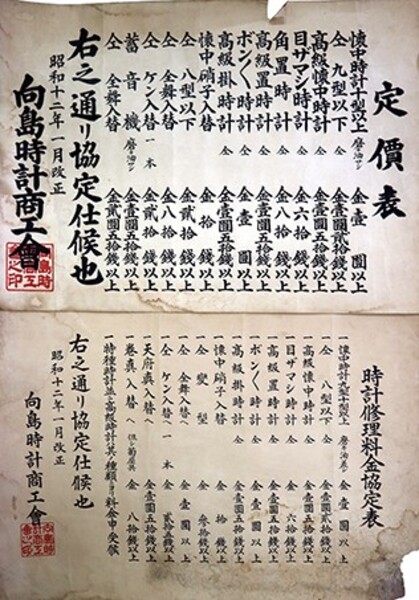 定價表
懐中時計十型以上 磨キ油サシ 金壹圓以上
仝 九型以下 仝 金壹圓貳拾錢以上
高級懐中時計 仝 金壹圓五拾錢以上
目サマシ時計 仝 金六拾錢以上
角置時計 仝 金八拾錢以上
高級置時計 仝 金壹圓五拾錢以上
ボン〱時計 仝 金壹圓以上
高級掛時計 仝 金壹圓五拾錢以上
懐中硝子入替 金拾錢以上
仝 八型以下 金貳拾錢以上
仝 全舞入替 金八拾錢以上
仝 ケン入替 一本 金貳拾錢以上
蓄音機 磨キ油サシ 金壹圓五拾錢以上
仝 全舞入替 金貳圓五拾錢以上
右之通リ協定仕候也
昭和十二年一月改正
向島時計商工會
向島時計商工會之印
時計修理料金協定表
一懐中時計九型十型以上 磨キ油差シ 金壹圓以上
一仝 八型以下 仝 金壹圓貳拾錢以上
一高級懐中時計 仝 金壹圓五拾錢以上
一目サマシ時計 仝 金六拾錢以上
一置時計 仝 金八拾錢以上
一高級置時計 仝 金壹圓五拾錢以上
一ボン〱時計 仝 金壹圓以上
一高級掛時計 仝 金壹圓五拾錢以上
一懐中硝子入替 金拾錢以上
一仝 變型 金參拾錢以上
一仝 全舞入替へ 金壹圓以上
一仝 ケン入替へ 一本 金貳拾五錢以上
一天府眞入替へ 金壹圓五拾錢以上
一巻眞入替へ 金八拾錢以上
右之通リ協定仕候也
昭和十二年一月改正
向島時計商工會
向島時計商工會之印